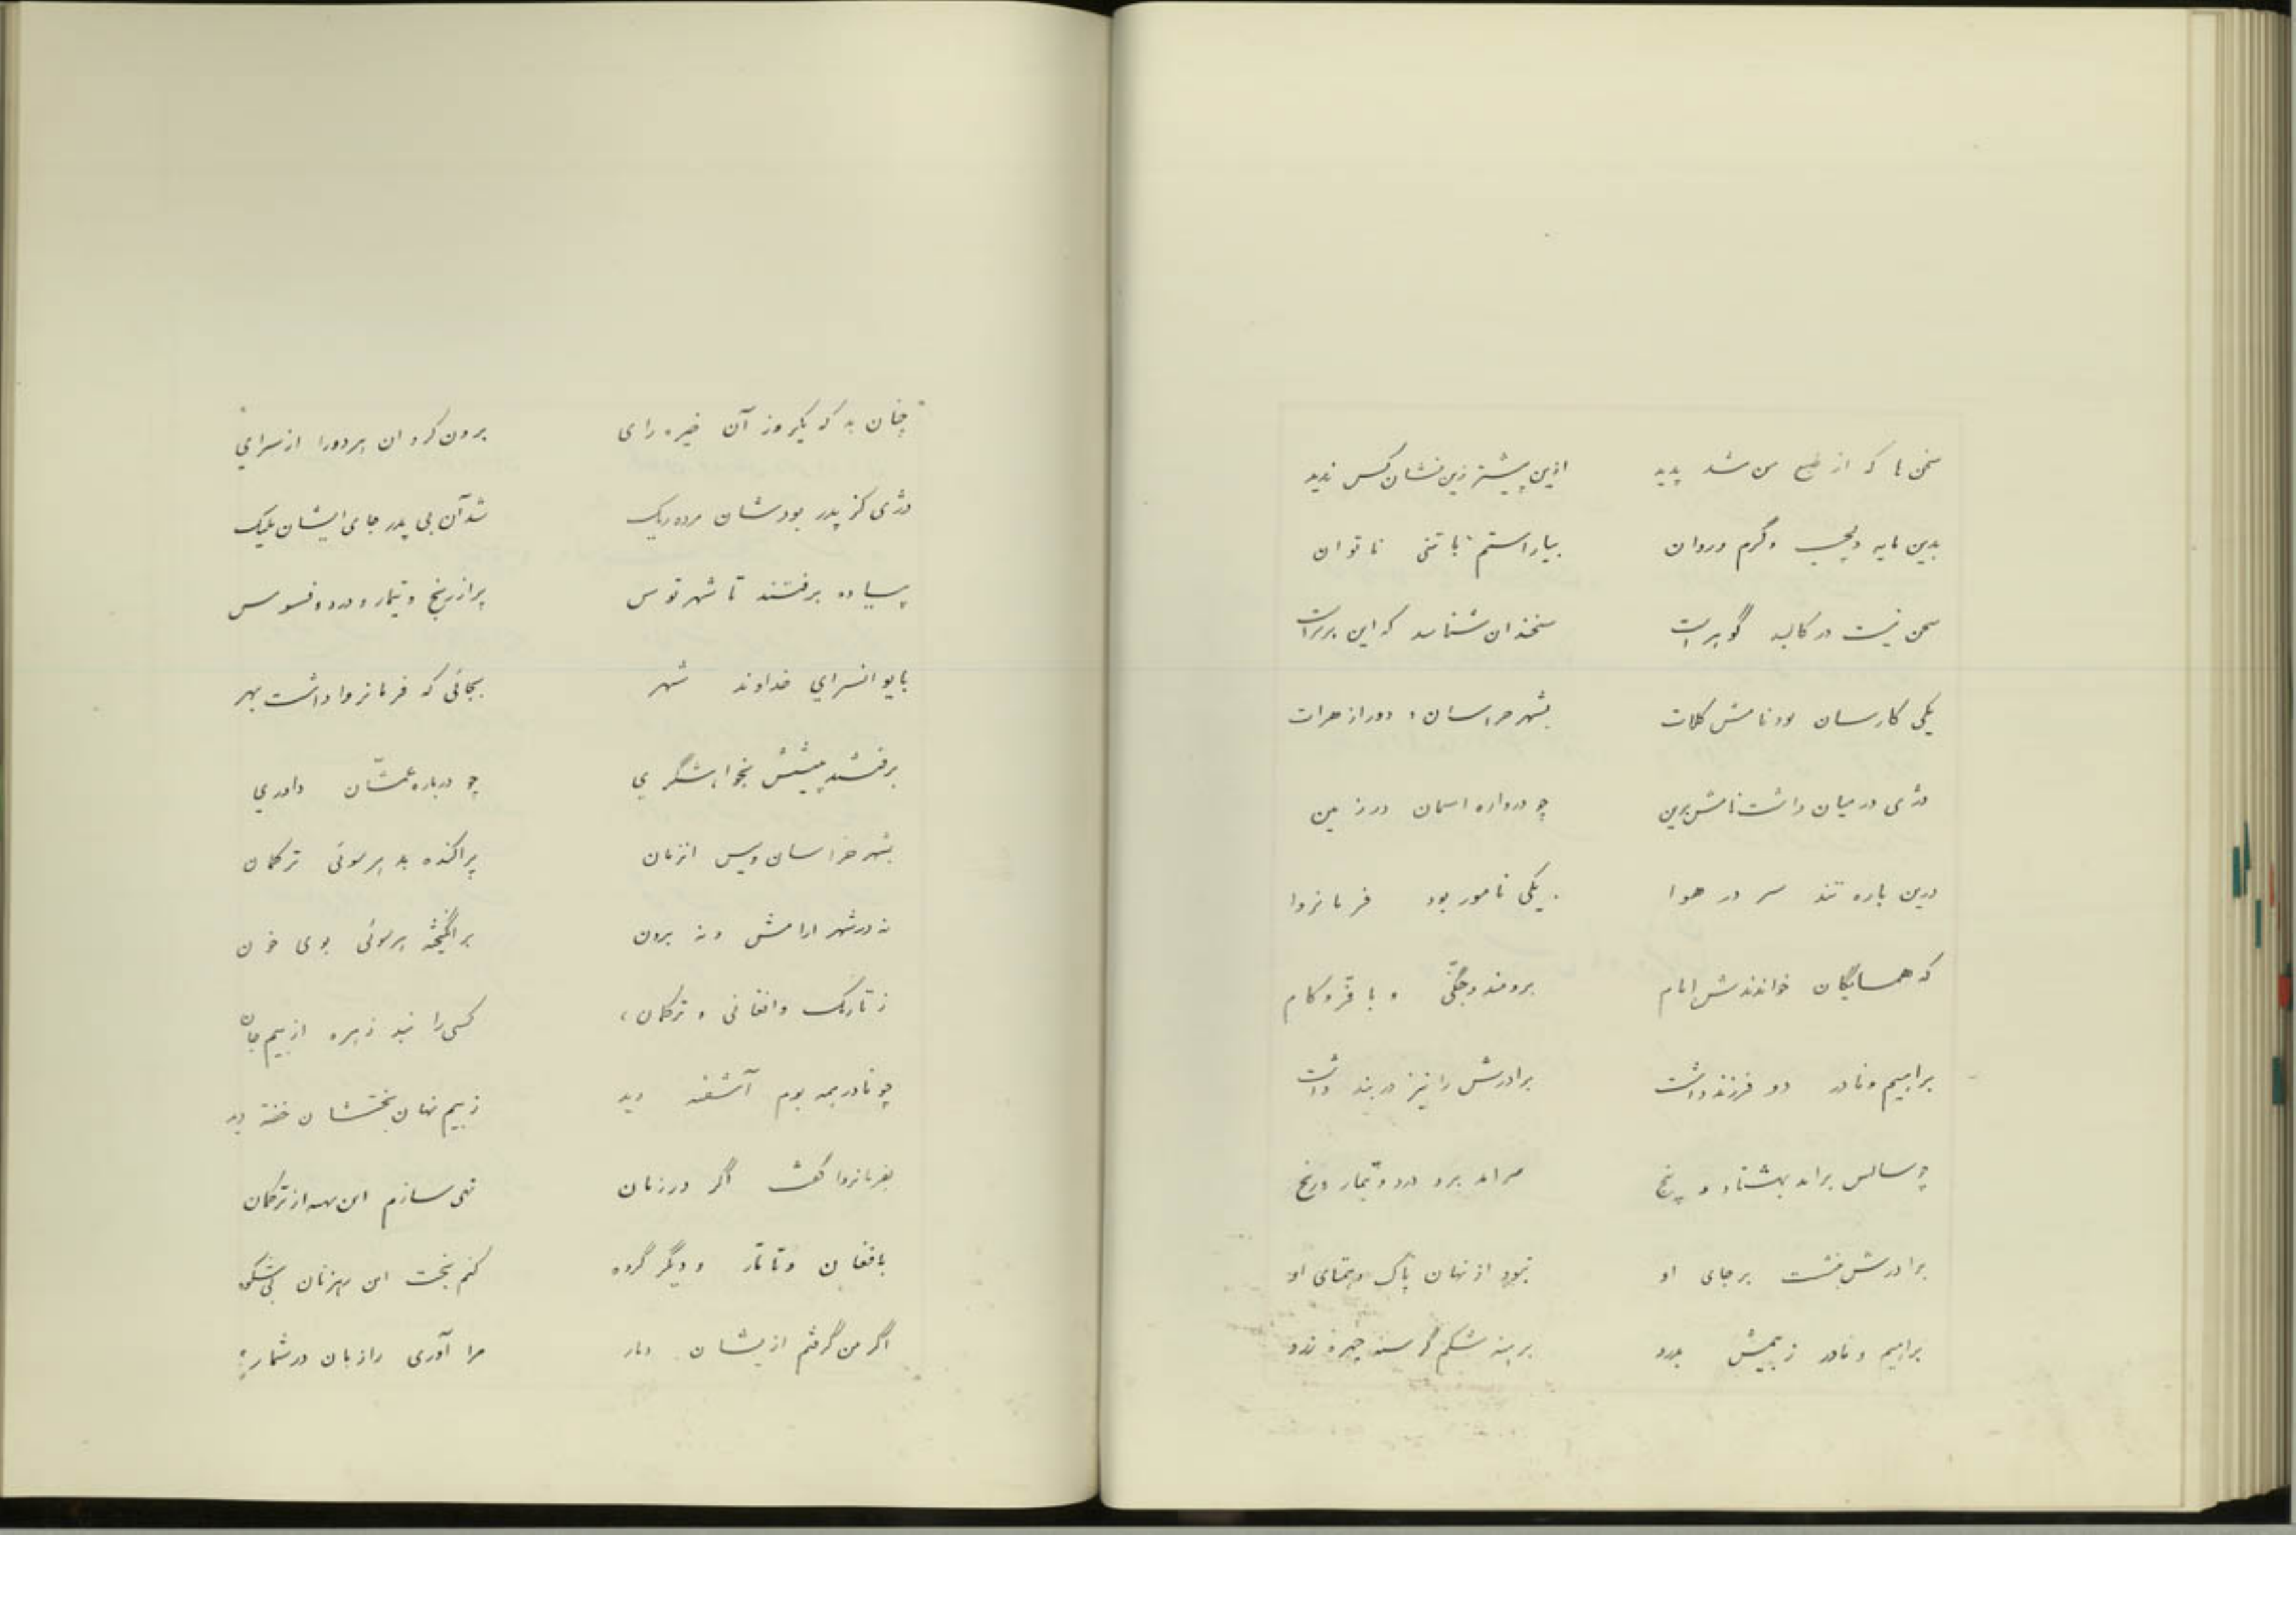 سخن ها که از طبع من شد پدید ازین پیشتر زین نشان کس ندید
بدین مایه دلچسب و گرم و روان بیاراستم با تنی ناتوان
سخن نیست در کالبد گوهر است سخندان شناسد که این برتر است
یکی کارسان بود نامش کلات بشهر خراسان، دور از هرات
دژی در میان داشت نامش برین چو دروازه اسمان در زمین
درین باره تند سر در هوا یکی نامور بود فرمانروا
که همسایگان خواندندش امام برومند و جنگی و با فر و کام
براهیم و نادر دو فرزند داشت برادرش را نیز در بند داشت
چو سالش برامد بهشتاد و پنج سرامد برو درد و تیمار و رنج
برادرش بنشست بر جای او نبود از نهان پاک همتای او
براهیم و نادر ز بیمش بدرد برهنه شکم گرسنه چهره زرد
چنان بد که یکروز آن خیره رای برون کرد ان هردورا از سرای
دژی کز پدر بودشان مرده ریک شد آن بی پدر جای ایشان
پیاده برفتند تا شهر توس پر از رنج و تیمار و درد و فسوس
بایوانسرای خداوند شهر بجائی که فرمانروا داشت بهر
برفتند پیشش بخواهشگری چو درباره عمشان داوری
بشهر خراسان و پس انزمان پراکنده بد هرسوئی ترکمان
نه در شهر ارامش و نه برون برانگیخته هرسوئی بوی خون
ز تاریک و افغانی و ترکمان، کسی را نبد زهره از بیم جان
چو نادر همه بوم آشفته دید ز بیم نهان بختشان خفته دید
بفرمانروا گفت اگر در زمان تهی سازم این مهد از ترکمان
بافغان و تاتار و دیگر گروه کنم بخت این رهزنان بی شکوه
اگر من گرفتم ازیشان دمار مرا آوری رازبان در شمار؟